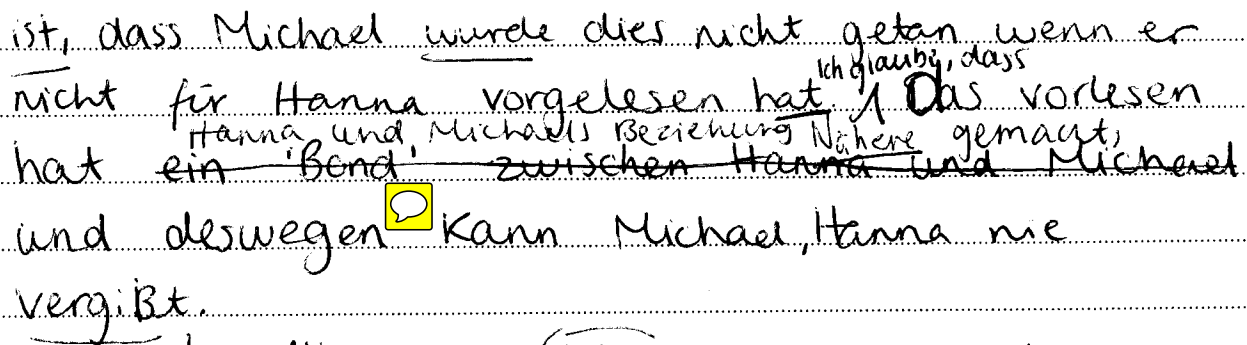 ist, dass Michael wurde dies nicht getan wenn er
nicht für Hanna vorgelesen hat. Ich glaube, dass Das vorlesen
hat Hanna und Michaels Beziehung Nähere gemacht,
ein 'Bond' zwischen Hanna und Michael
und deswegen kann Michael, Hanna nie
vergißt.